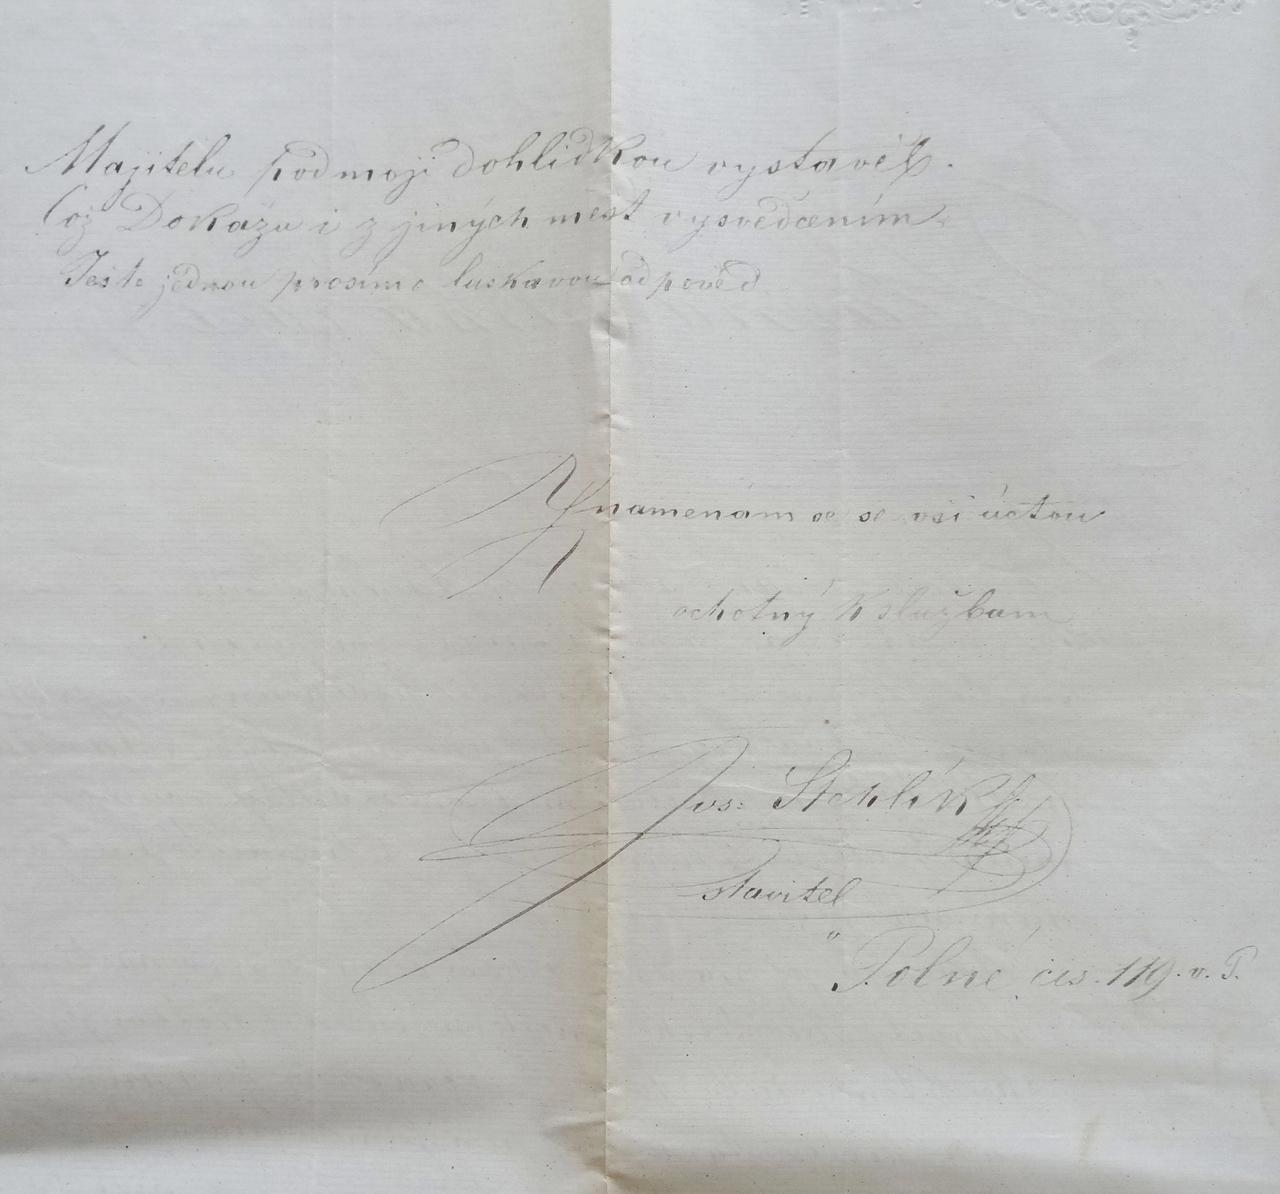 Majitelu pod moji dohlídkou vystavěl.
Což Dokážu i z jiných mest vysvědcením
Ješte jednou prosím o laskavou odpověd
Znamenám se se vsi úctou
ochotný k službam
Jos: Stehlík
stavitel
" Polné čis. 119. v. P.